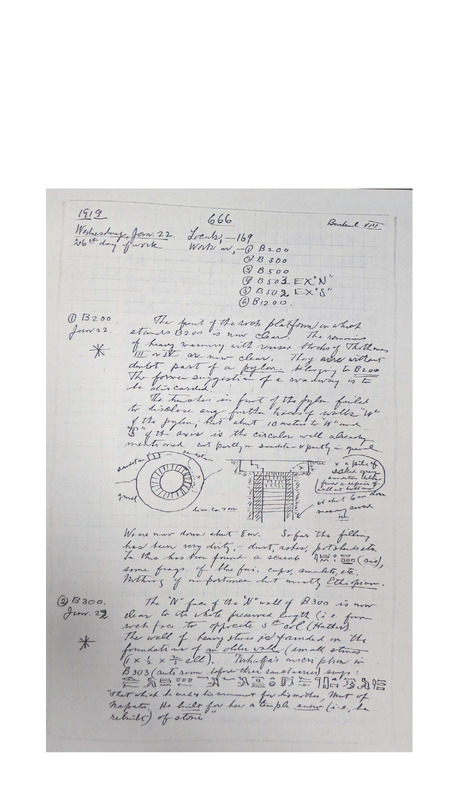 1919 666 Barkal VIII
Wednesday, Jan. 22 Locals, - 169
26th day of work Work on, - ① B200
② B300
③ B500
④ B503 EX "N"
⑤ B502 EX "S"
⑥ B1200.
① B200 The front of the rock platform on which
Jan 22. stands B200 is now clear. The remains
of heavy masonry with reused blocks of Thothmes
III or IV are now clear. They are without
doubt part of a pylon belonging to B200
The former suggestion of a roadway is to
be discarded.
The trenches in front of the pylon failed
to disclose any further traces of walls "W"
of the pylon, but about 10 meters to "W" and
"S" of the axis is the circular well already
mentioned cut partly in sandstone & partly in gravel
sandstone
gravel
x a pile of
about 6 m down
masonry caved
in
We are now down about 5 m. So far the filling
has been very dirty, - dust, ashes, potsherds etc.
In this has been found a scarab (sic),
some frags. of blue fai. cups, amulets, etc.
Nothing of importance but mostly Ethiopian.
② B300. The "N" face of the "N" wall of B300 is now
Jan. 22 clear to its whole preserved length (i.e. from
rock face to opposite 3rd col (Hathor).
The wall of heavy stones is founded on the
foundations of an older wall (small stones
(1 x ½ x ⅔ ell). Tirhaqa's inscription in
B303 (ante room before these sanctuaries) says:
"that which he made, his monument for his mother, Mut of
Napata. He built for her a temple anew (i.e., he
rebuilt) of stone"